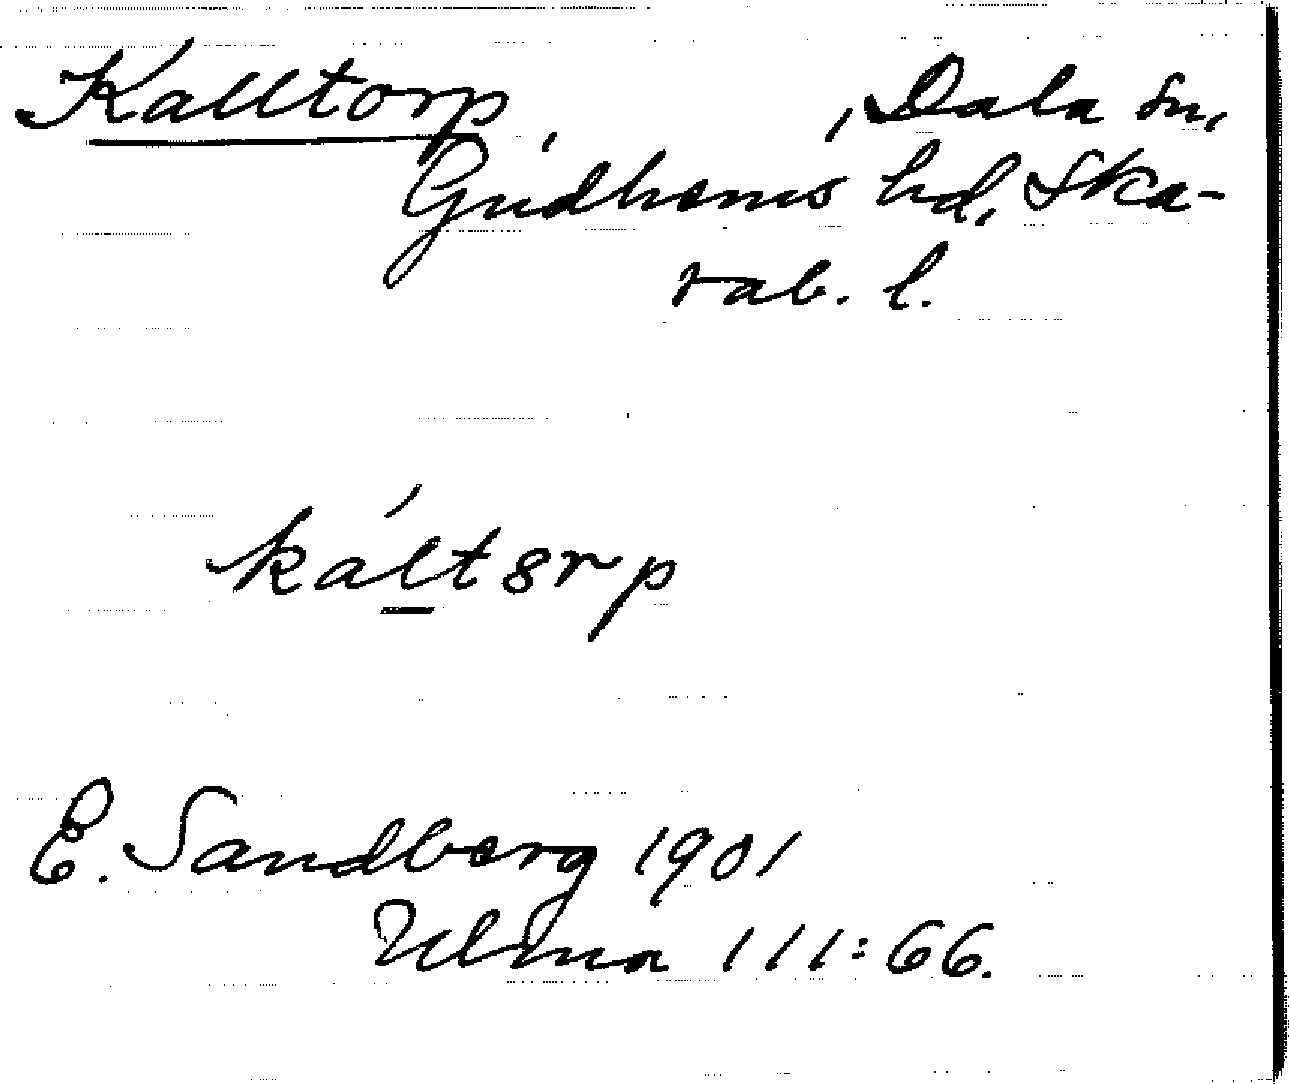 Kalltorp, , Dala sn,
Gudhems hd, Ska-
rab. l.
káltȣrp
E. Sandberg 1901
Ulma 111:66.